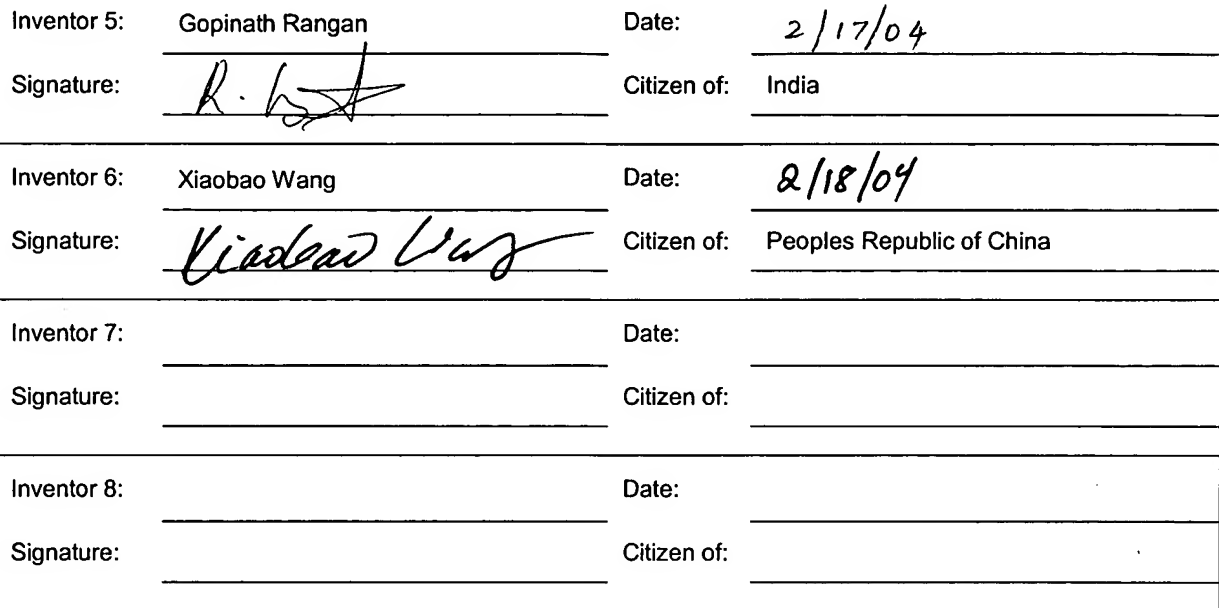 Inventor 5: Gopinath Rangan Date: 2/17/04
Signature: R. Citizen of: India
Inventor 6: Xiaobao Wang Date: 2/18/04
Signature: Xiaobao Wang Citizen of: Peoples Republic of China
Inventor 7: Date:
Signature: Citizen of:
Inventor 8: Date:
Signature: Citizen of: